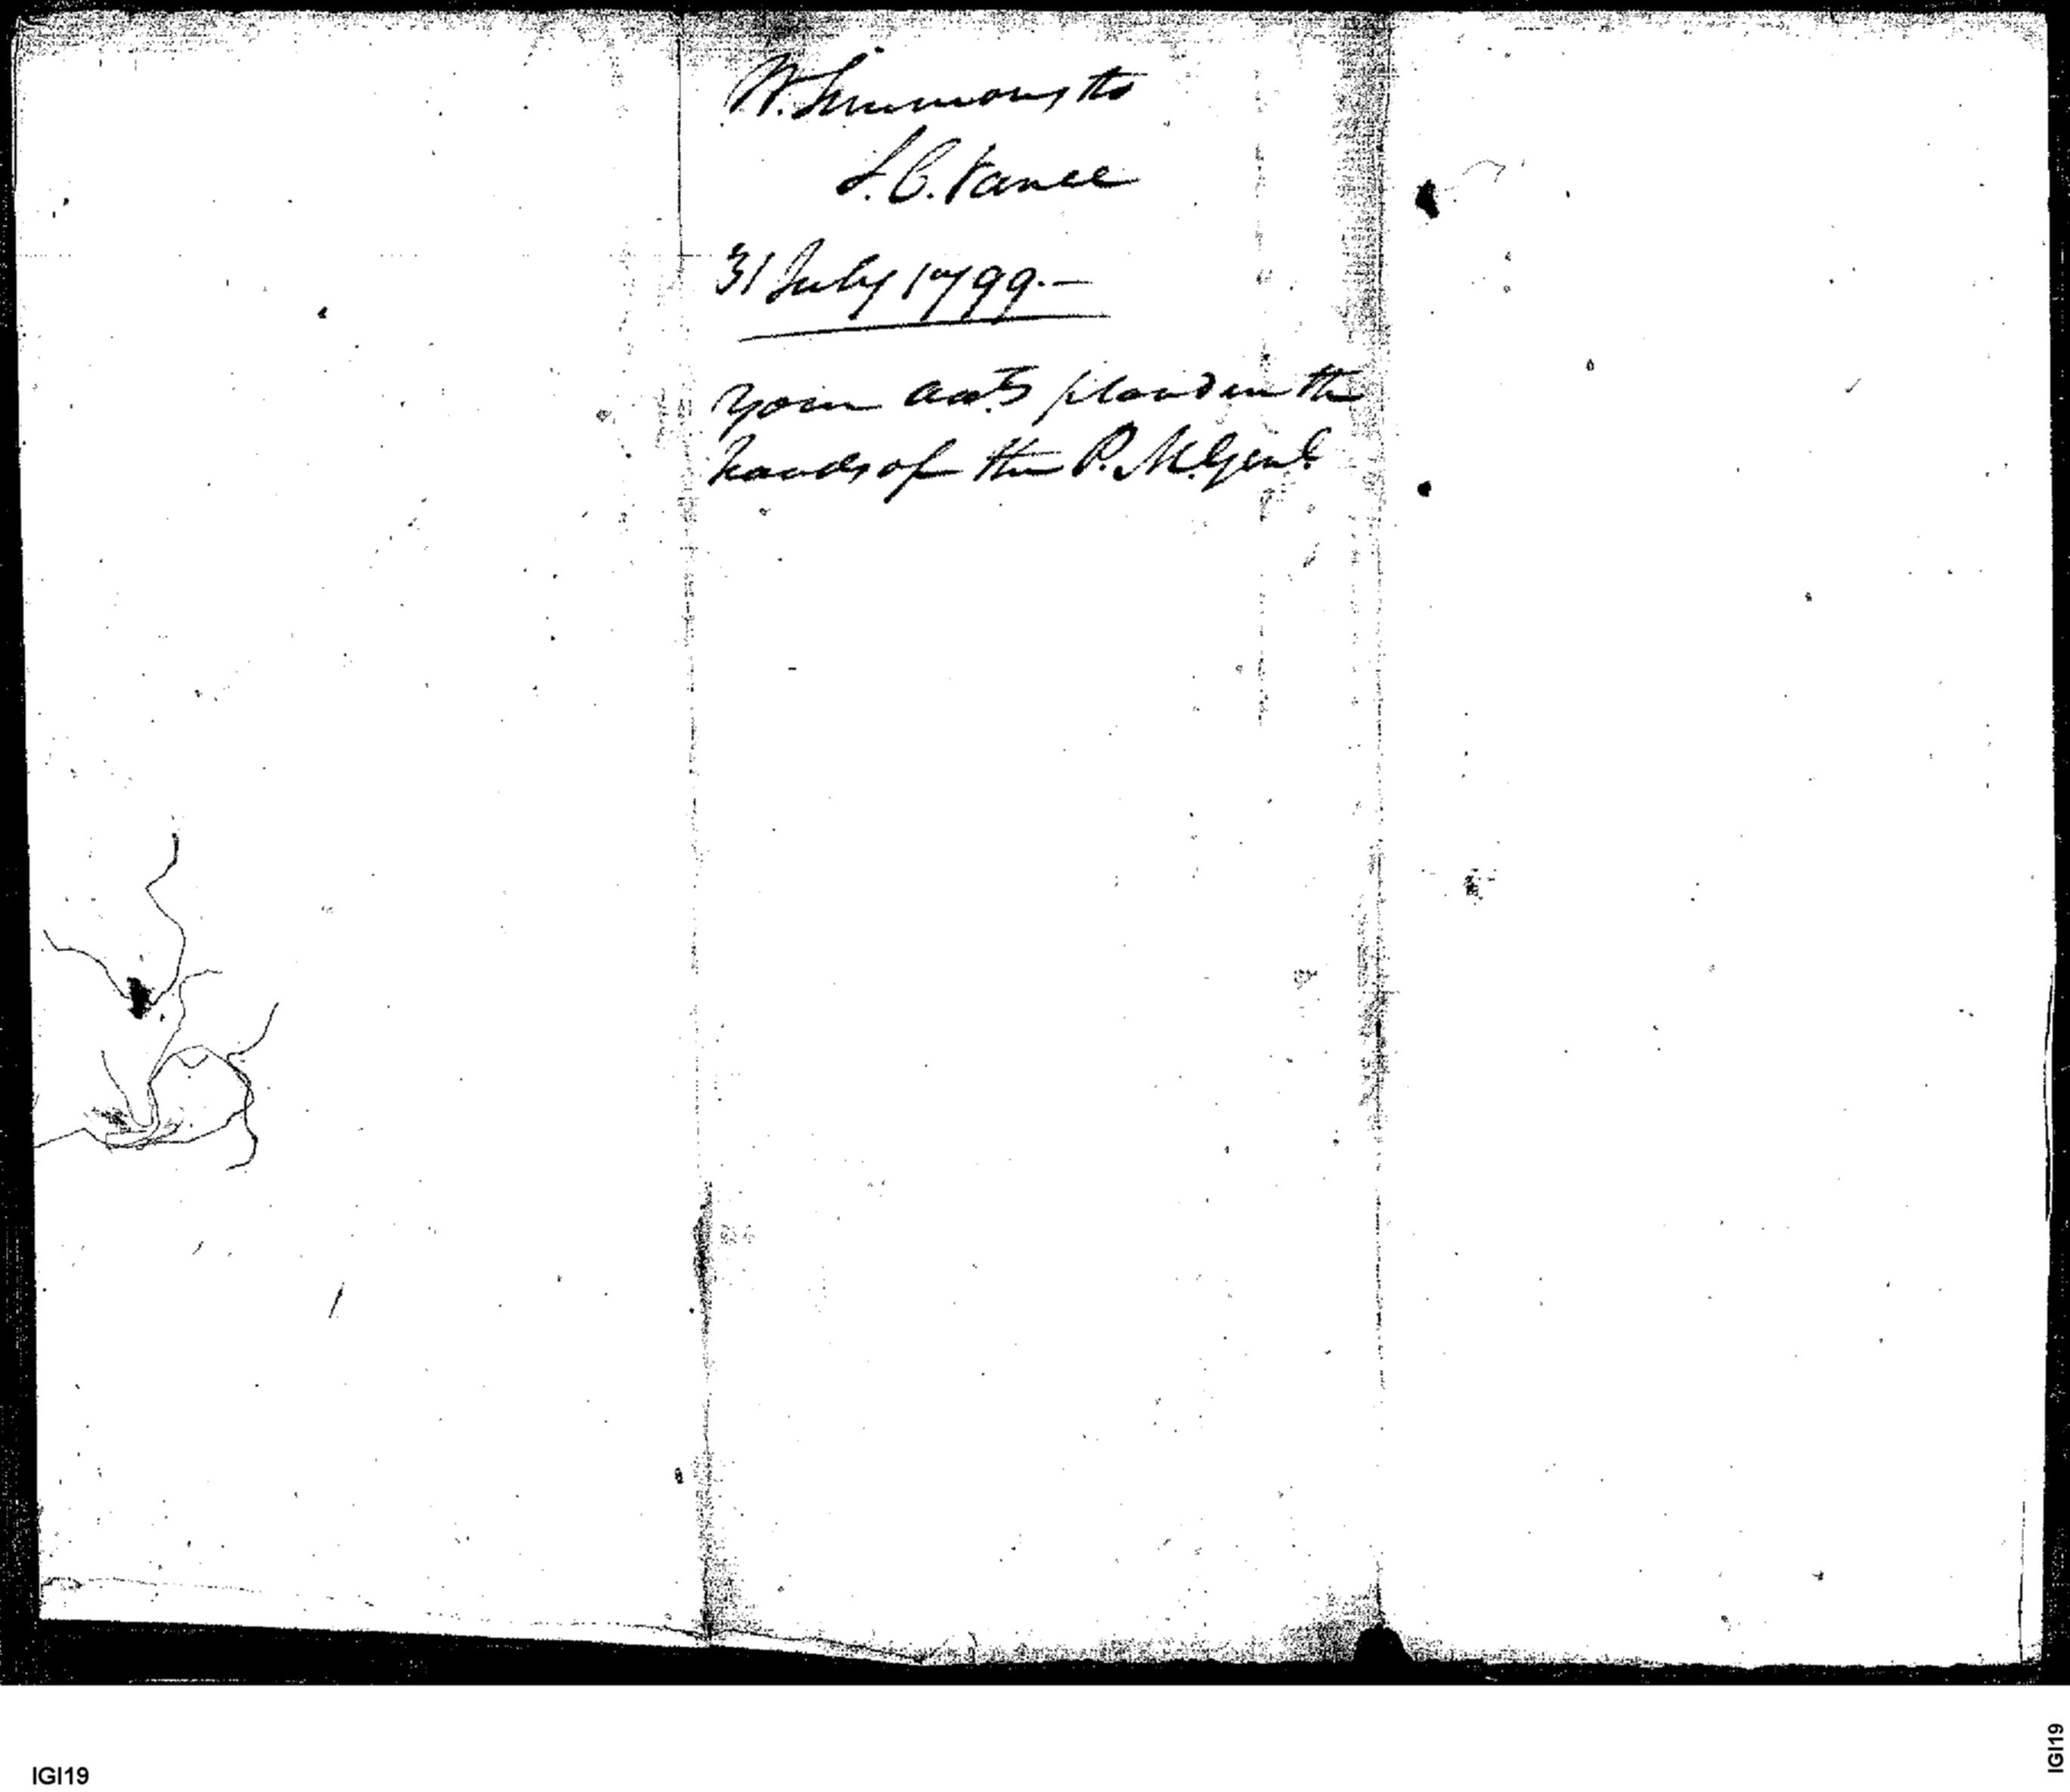 W. Simmons to
S. C. Vance
31 July 1799.—
Your accts placed in the
hands of the P. M. Genl.
IGI19
IGI19